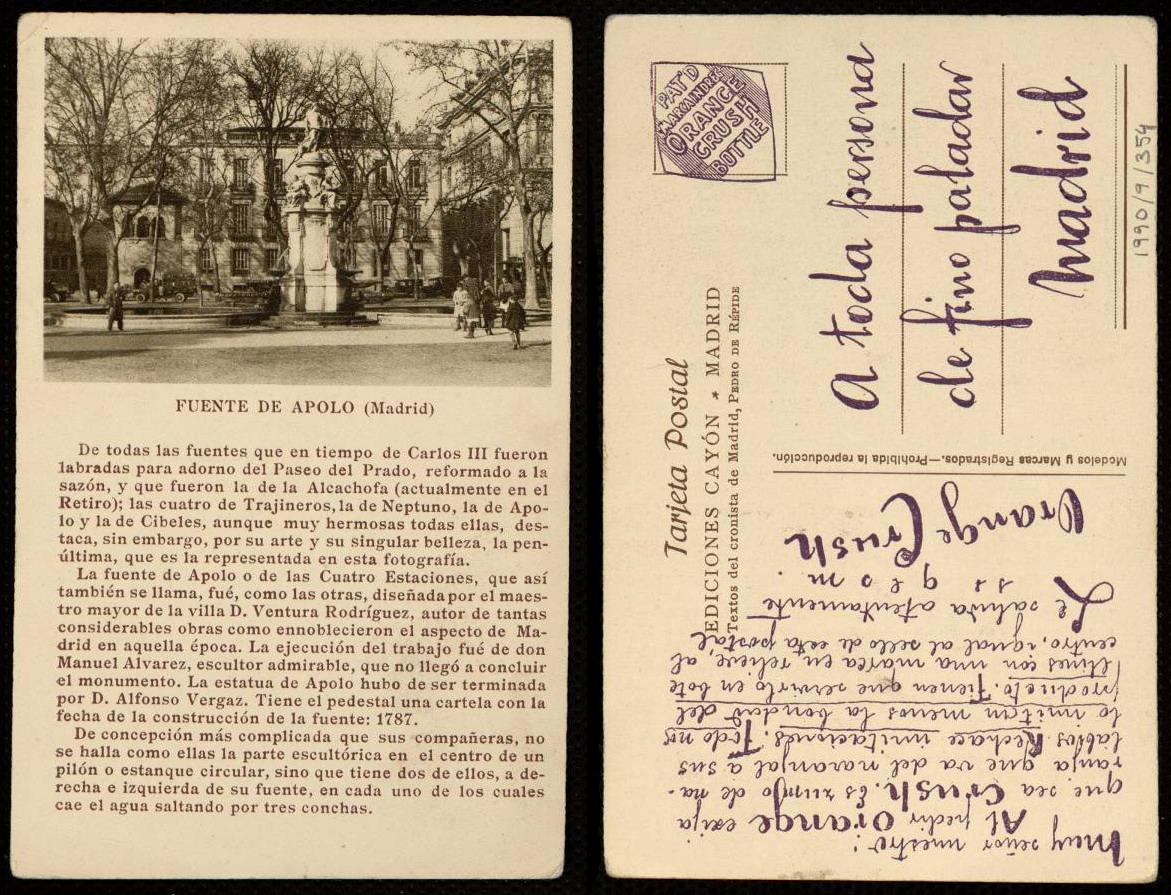 FUENTE DE APOLO (Madrid)
De todas las fuentes que en tiempo de Carlos III fueron
labradas para adorno del Paseo del Prado, reformado a la
sazón, y que fueron la de la Alcachofa (actualmente en el
Retiro); las cuatro de Trajineros, la de Neptuno, la de Apo-
lo y la de Cibeles, aunque muy hermosas todas ellas, des-
taca, sin embargo, por su arte y su singular belleza, la pen-
última, que es la representada en esta fotografía.
La fuente de Apolo o de las Cuatro Estaciones, que así
también se llama, fué, como las otras, diseñada por el maes-
tro mayor de la villa D. Ventura Rodríguez, autor de tantas
considerables obras como ennoblecieron el aspecto de Ma-
drid en aquella época. La ejecución del trabajo fué de don
Manuel Alvarez, escultor admirable, que no llegó a concluir
el monumento. La estatua de Apolo hubo de ser terminada
por D. Alfonso Vergaz. Tiene el pedestal una cartela con la
fecha de la construcción de la fuente: 1787.
De concepción más complicada que sus compañeras, no
se halla como ellas la parte escultórica en el centro de un
pilón o estanque circular, sino que tiene dos de ellos, a de-
recha e izquierda de su fuente, en cada uno de los cuales
cae el agua saltando por tres conchas.
Tarjeta Postal
EDICIONES CAYÓN * MADRID
Textos del cronista de Madrid, PEDRO DE RÉPIDE
PAT'D
ORANGE
CRUSH
BOTTLE
A toda persona
de fino paladar
Madrid
1990/9/354
Modelos y Marcas Registrados.—Prohibida la reproducción.
Muy señor nuestro:
Al pedir Orange exija
que sea Crush. Es zumo de na-
ranja que va del naranjal a sus
labios. Rechace imitaciones. Todo nos
lo imitan menos la bondad del
producto. Tienen que servirlo en bote
llines con una marca en relieve, al
centro, igual al sello de esta postal
Le saluda atentamente
s s q e s m.
Orange Crush